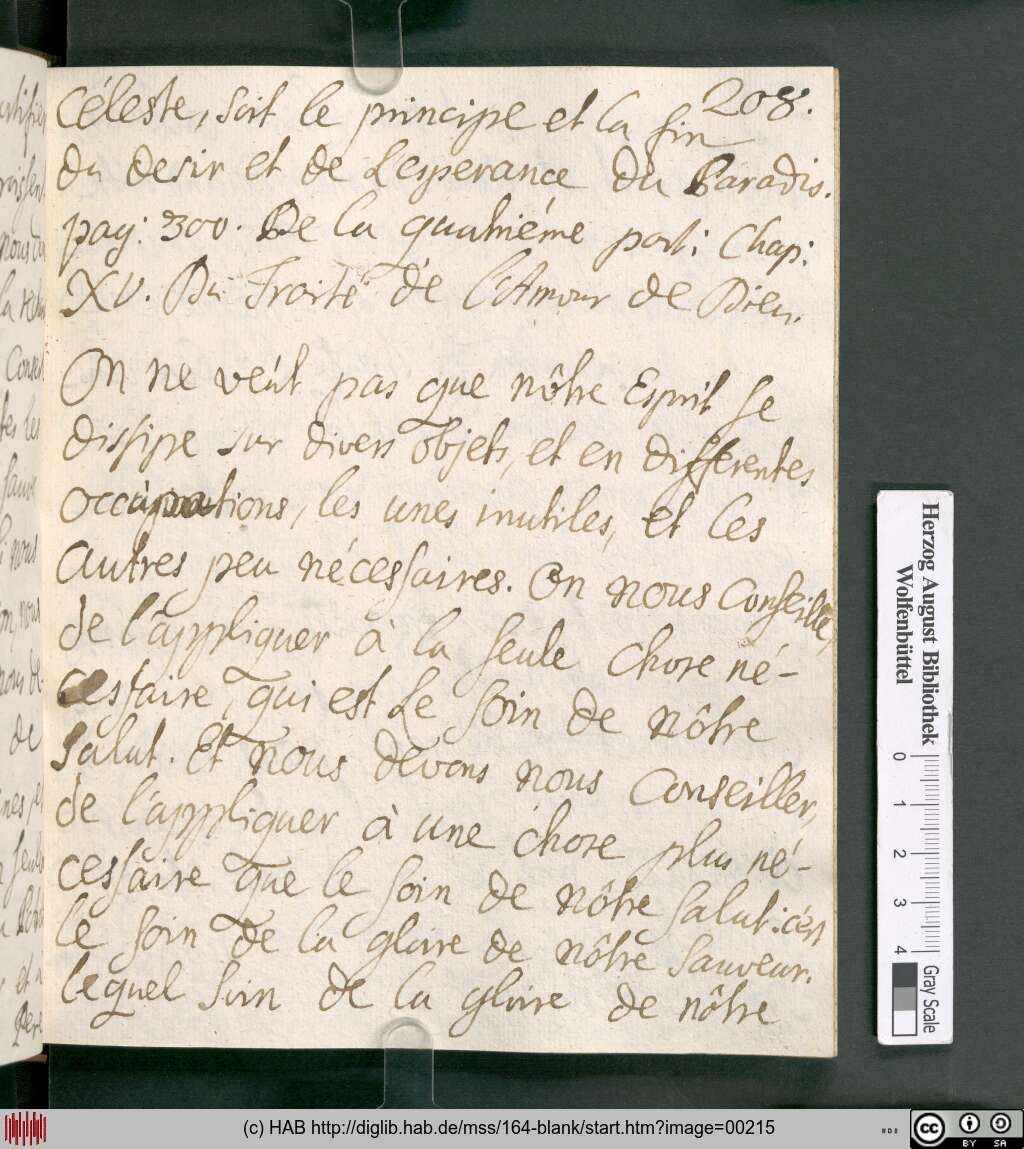 208.
Céleste, soit le principe et la fin
du desir et de Lesperance du Paradis.
pag: 300. De la quatriéme part: Chap:
XV. Du Traité de l'Amour de Dieu.
On ne veut pas que nôtre Esprit se
dissipe sur divers objets, et en differentes
occupations, les unes inutiles, et les
autres peu nécessaires. On nous Conseille,
de l'appliquer à la seule chose né-
cessaire, qui est Le soin de nôtre
salut. Et nous devons nous Conseiller,
de l'appliquer à une chose plus né-
cessaire que le soin de nôtre salut: c'est
le soin de la gloire de nôtre Sauveur.
lequel soin de la gloire de nôtre
Herzog August Bibliothek
Wolfenbüttel
0 1 2 3 4
Gray Scale
(c) HAB http://diglib.hab.de/mss/164-blank/start.htm?image=00215
cc BY SA